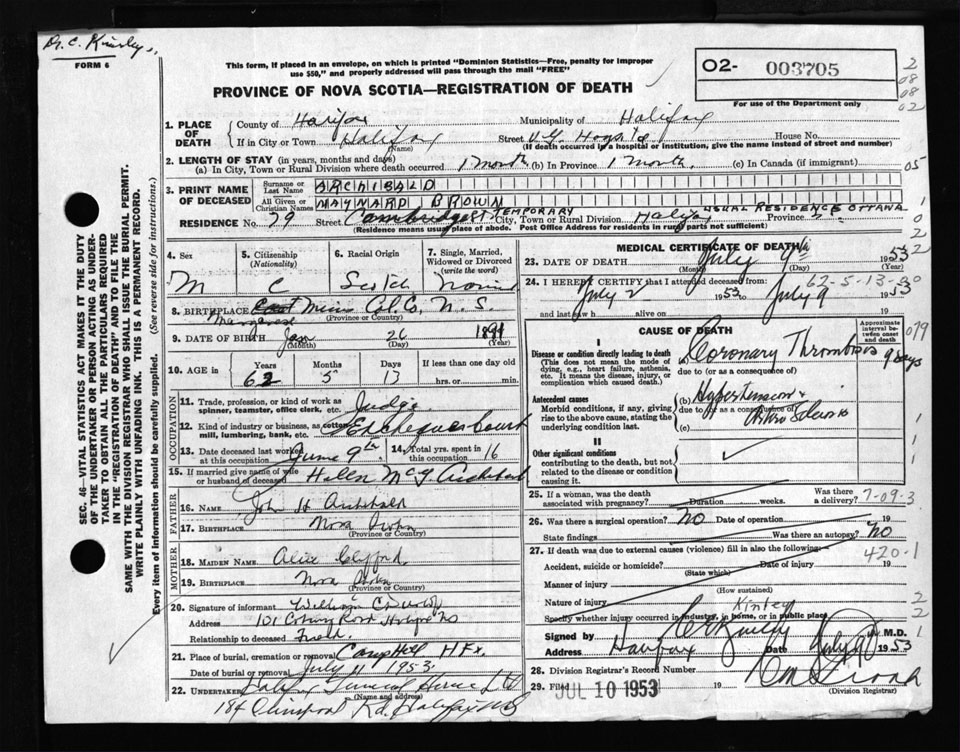 Dr. C. Kinley
FORM 6
This form, if placed in an envelope, on which is printed "Dominion Statistics—Free, penalty for improper
use $50," and properly addressed will pass through the mail "FREE"
PROVINCE OF NOVA SCOTIA—REGISTRATION OF DEATH
O2- 003705
For use of the Department only
2
08
08
02
1. PLACE OF DEATH
County of Halifax Municipality of Halifax
If in City or Town Halifax Street V.G. Hospital House No.
(Name) (If death occurred in a hospital or institution, give the name instead of street and number)
2. LENGTH OF STAY (in years, months and days)
(a) In City, Town or Rural Division where occurred 1 month (b) In Province 1 month. (c) In Canada (if immigrant)
05
3. PRINT NAME OF DECEASED
Surname or Last Name ARCHIBALD
All Given or Christian Names MAYNARD BROWN
TEMPORARY USUAL RESIDENCE OTTAWA
RESIDENCE No. 79 Street Cambridge St City, Town or Rural Division Halifax Province
(Residence means usual place of abode. Post Office Address for residents in rural parts not sufficient)
4. Sex M
5. Citizenship (Nationality) C
6. Racial Origin Scotch
7. Single, Married, Widowed or Divorced (write the word)
8. BIRTHPLACE Col. Co. N. S.
(Province or Country)
9. DATE OF BIRTH Jan 26 1891
(Month) (Day) (Year)
10. AGE in Years Months Days If less than one day old
62 5 13 hrs. or min.
OCCUPATION
11. Trade, profession, or kind of work as spinner, teamster, office clerk, etc. Judge
12. Kind of industry or business, as cotton mill, lumbering, bank, etc. Exchequer Court
13. Date deceased last worked at this occupation June 9th 14. Total yrs. spent in this occupation 16
15. If married give name of wife or husband of deceased Helen Mc Y. Archibald
FATHER
16. NAME John H Archibald
17. BIRTHPLACE Nova Scotia
(Province or Country)
MOTHER
18. MAIDEN NAME Alice Clifford
19. BIRTHPLACE Nova Scotia
(Province or Country)
20. Signature of informant William
Address 101 Coburg Road Halifax NS
Relationship to deceased Friend.
21. Place of burial, cremation or removal Camp Hill HFx
Date of burial or removal July 11 1953.
22. Undertaker Halifax Funeral Service Ltd
184 Quinpool Rd. Halifax NS
MEDICAL CERTIFICATE OF DEATH
23. DATE OF DEATH July 9th 1953
(Month) (Day) (Year)
24. I HEREBY CERTIFY that I attended deceased from
62-5-13-
July 2 1953 to July 9 1953
and last saw h alive on 19
CAUSE OF DEATH
Approximate interval between onset and death
I
Disease or condition directly leading to death
(This does not mean the mode of dying, e.g., heart failure, asthenia, etc. It means the disease, injury, or complication which caused death.
(a) Coronary Thrombosis 9 days
due to (or as a consequence of)
Antecedent causes
Morbid conditions, if any, giving rise to the above cause, stating the underlying condition last.
(b) Hypertension +
due to (or as a consequence of)
(c)
II
Other significant conditions
contributing to the death, but not related to the disease or condition causing it.
079
25. If a woman, was the death associated with pregnancy? Duration weeks. Was there a delivery?
7-09-3
26. Was there a surgical operation? NO Date of operation 19
State findings Was there an autopsy? NO
27. If death was due to external causes (violence) fill in also the following:
420-1
Accident, suicide or homicide? Date of injury 19
(State which)
Manner of injury
(How sustained)
Nature of injury
Specify whether injury occurred in industry, in home, or in public place
Kinley
Signed by M.D.
Address Halifax Date July 9 1953
28. Division Registrar's Record Number
29. Filed JUL 10 1953
(Division Registrar)
SEC. 46—VITAL STATISTICS ACT MAKES IT THE DUTY
OF THE UNDERTAKER OR PERSON ACTING AS UNDER-
TAKER TO OBTAIN ALL THE PARTICULARS REQUIRED
IN THE "REGISTRATION OF DEATH" AND TO FILE THE
SAME WITH THE DIVISION REGISTRAR WHO SHALL ISSUE THE BURIAL PERMIT.
WRITE PLAINLY WITH UNFADING INK. THIS IS A PERMANENT RECORD.
Every item of information should be carefully supplied. (See reverse side for instructions.)